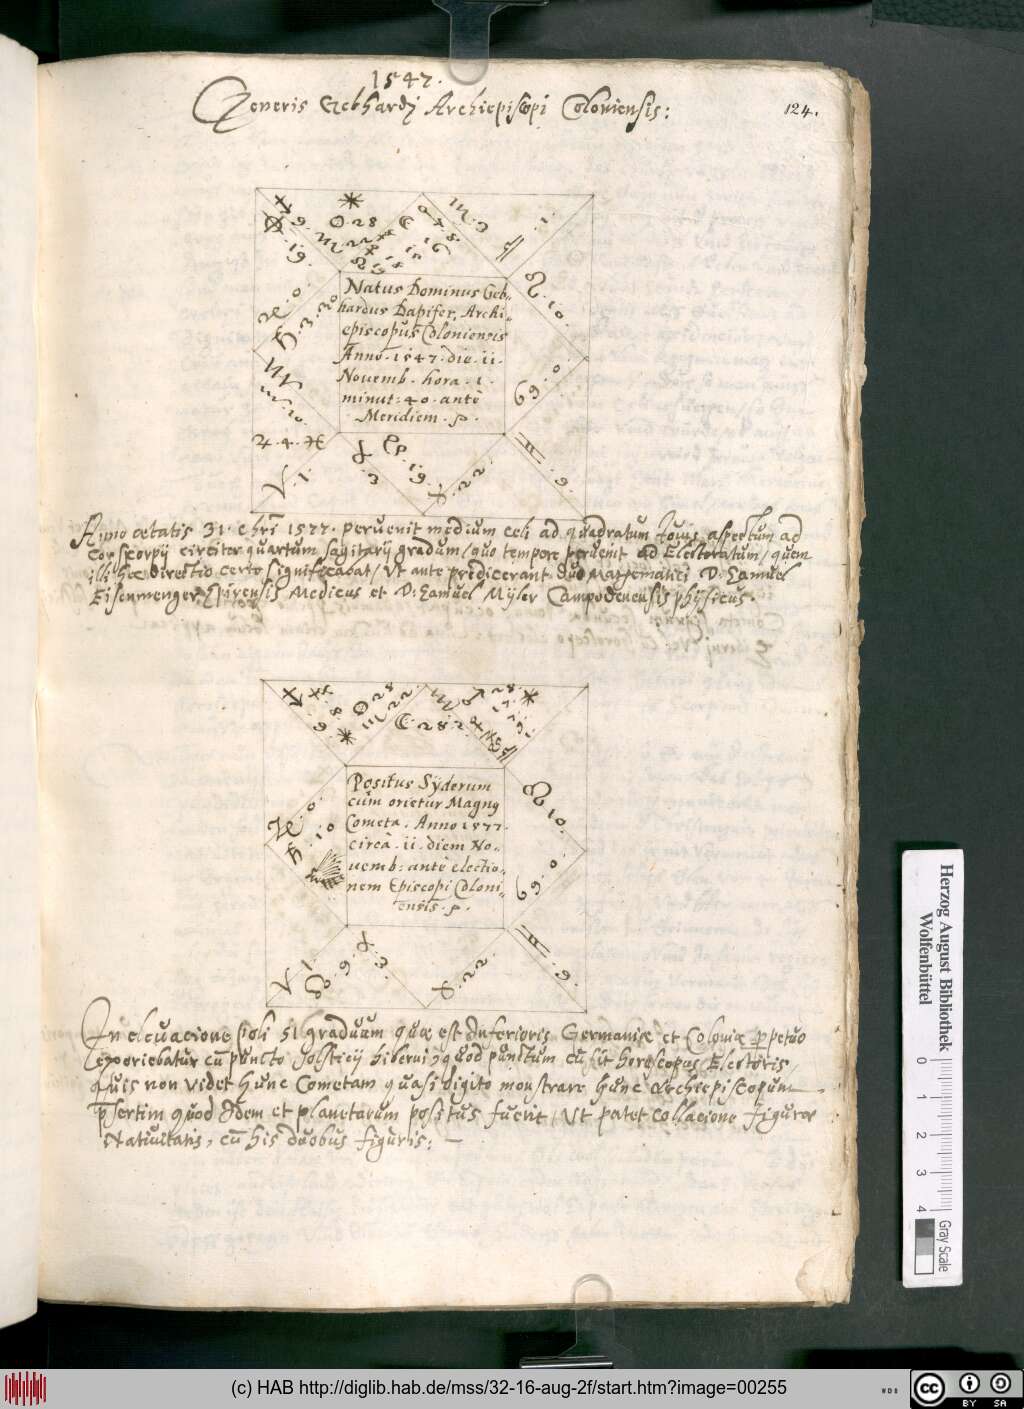 1547.
Generis Gebhardj Archiepiscopi Coloniensis:
124.
Natus Dominus Geb-
hardus Dapifer, Archi-
episcopus Coloniensis
Anno. 1547. die. ii.
Novemb. hora. 1.
minut: 40. ante
Meridiem. p.
Anno ætatis 31. Chri 1577. peruenit medium celi ad quadratum Jouis aspectum ad
Cor scorpij circiter quartum Sagitarij gradum / quo tempore peruenit ad Electoratum / quem
illi hæc directio certo significabat / Ut ante predicerant duo Mathematici D: Samuel
Eisenmenger, Spirensis Medicus et D: Samuel Mÿler Campodenensis phÿsicus.
Positus Sÿderum
cum orietur Magnq
Cometa. Anno 1577.
circa. ii. diem No-
uemb: ante electio-
nem Episcopi Coloni-
ensis. p.
In eleuacione poli 51 graduum quæ est Inferioris Germaniæ et Coloniæ perpetuo
exoriebatur cu puncto solsticij hiberni, quod punctum cu sit horoscopus Electoris,
quis non videt hunc Cometam quasi digito monstrare hunc Archiepiscopum
psertim quod Idem et planetarum positus fuerit / Ut patet collacione figuræ
Natiuitatis, cu his duobus figuris: —
Herzog August Bibliothek
Wolfenbüttel
0 1 2 3 4
Gray Scale
(c) HAB http://diglib.hab.de/mss/32-16-aug-2f/start.htm?image=00255
WDB
cc BY SA